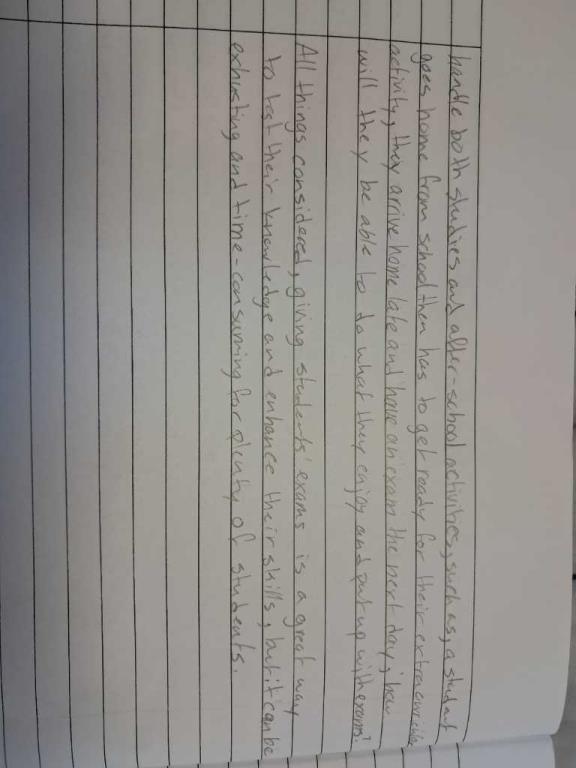 handle both studies and after-school activities, such as, a student
goes home from school then has to get ready for their extracurricular
activity, they arrive home late and have an exam the next day, how
will they be able to do what they enjoy and put up with exams?
All things considered, giving students' exams is a great way
to test their knowledge and enhance their skills, but it can be
exhusting and time-consuming for plenty of students.